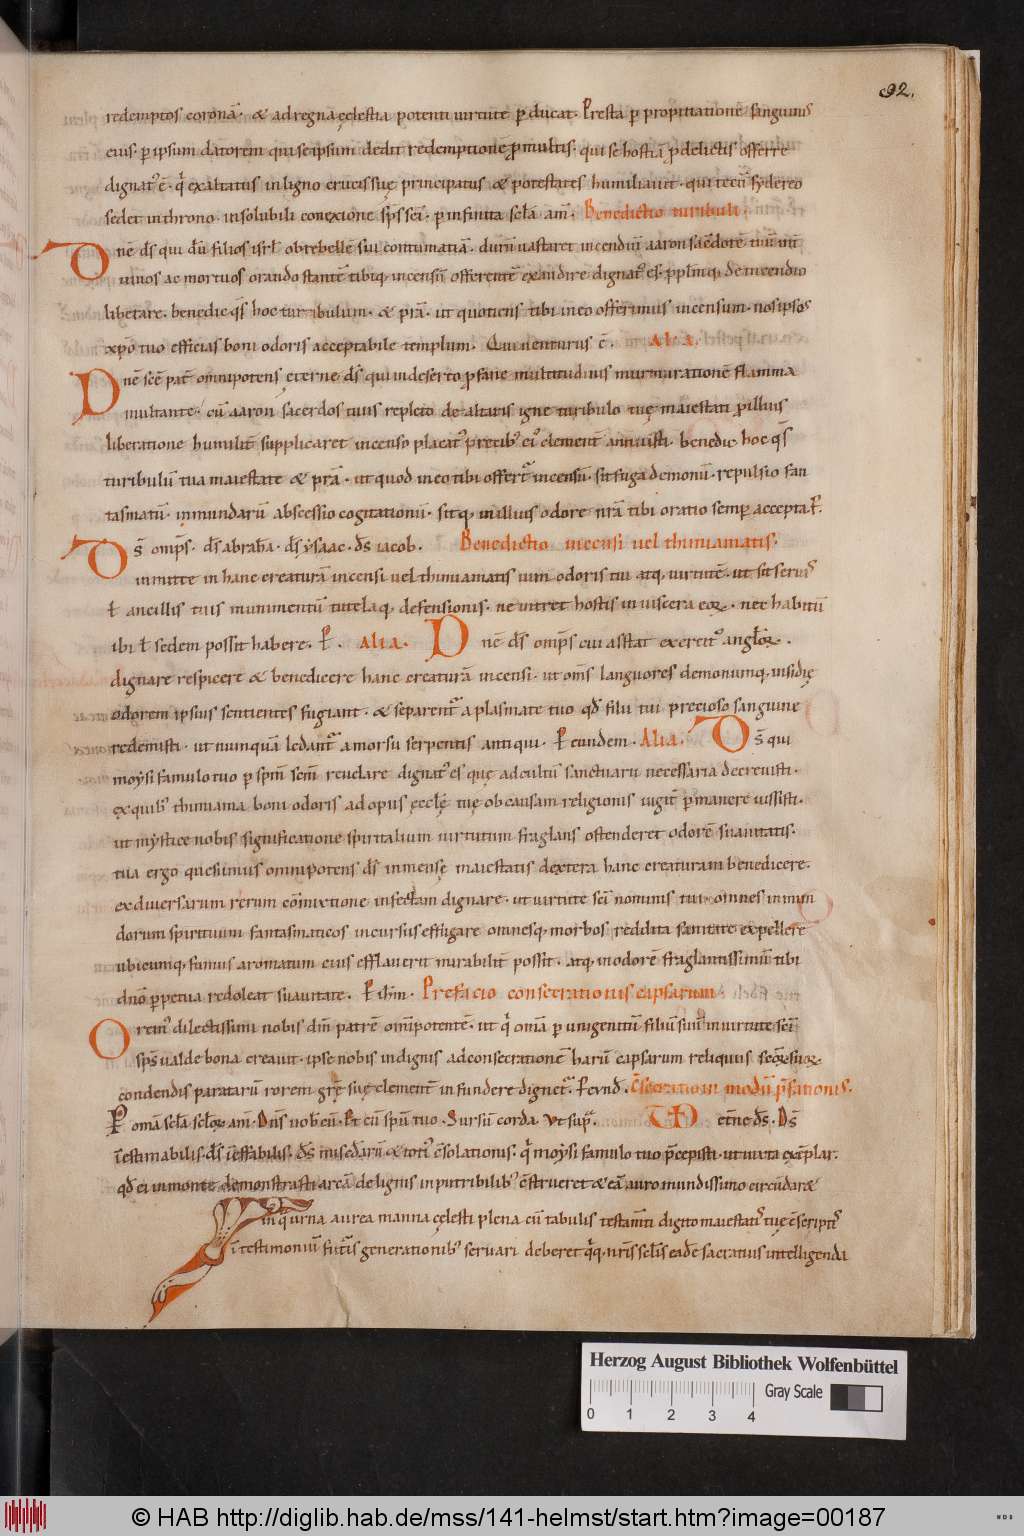 92.
redemptos coronā. & ad regna cęlestia potenti uirtute p̄ducat. Presta p̱ propitiationē sanguinis
eius. p̱ ipsum datorem qui se ipsum dedit redemptionē p̄ multis. qui se hostiā p̄ delictis offerre
dignatꝰ ē. q̇ exaltatus in ligno crucis suę principatus & potestates humiliauit. qui tecū sydereo
sedet in throno. insolubili conexione sp̄s sc̄i. p̱ infinita sc̄la am̄. Benedictio turibuli.
Dn̄e ds̄ qui
uiuos ac mortuos orando stantē tibiq; incensū offerentē exaudire dignatꝰ es. de incendio
liberare. benedic qs̄ hoc turribulum. & p̄sta. ut quotiens tibi in eo offerimus incensum. nos ipsos
xp̄o tuo efficias boni odoris acceptabile templum. Qui uenturus ē. Alia.
Dn̄e sc̄e pat̄ omnipotens eterne ds̄ qui in deserto p̄fane multitudinis murmurationē flamma
multante. cū aaron sacerdos tuus repleto de altaris igne turibulo tuę maiestati p̄ illius
liberatione humilit̄ supplicaret incenso placatꝰ p̄cibꝰ eiꝰ clement̄ annuisti. benedic hoc qs̄
turibulū tua maiestate & p̄sta. ut quod in eo tibi offert̄ incensū. sit fuga demonū. repulsio fan
tasmatū. inmundarū abscessio cogitationū. sitq; in illius odore nr̄a tibi oratio semp̱ accepta. P̱.
Ds̄ omp̄s. ds̄ abrahā. ds̄ ysaac. ds̄ iacob. Benedictio incensi uel thimiamatis.
inmitte in hanc creaturā incensi uel thimiamatis uim odoris tui atq; uirtutē. ut sit seruis
ł ancillis tuis munimentū tutelaq; defensionis. ne intret hostis in uiscera eoꝝ. nec habitū
ibi ł sedem possit habere. P̱. Alia. Dn̄e ds̄ omp̄s cui astat exercitꝰ angl̄oꝝ.
dignare respicere & benedicere hanc creaturā incensi. ut om̄s languores demonumq; insidię
odorem ipsius sentientes fugiant. & separent̄ a plasmate tuo qd̄ filii tui precioso sanguine
redemisti. ut nunquā ledant̄ a morsu serpentis antiqui. P̱ eundem. Alia. Ds̄ qui
moysi famulo tuo p̱ sp̄m sc̄m reuelare dignatꝰ es quę ad cultū sanctuarii necessaria decreuisti.
ex quibꝰ thimiama boni odoris ad opus ęcclę tuę ob causam religionis iugit̄ p̱manere iussisti.
ut mystice nobis significatione spiritalium uirtutum fraglans ostenderet odorē suauitatis.
tua ergo quesumus omnipotens ds̄ inmensę maiestatis dextera hanc creaturam benedicere.
ex diuersarum rerum cōmixtione infectam dignare. ut uirtute sc̄i nominis tui. omnes inmun
dorum spirituum fantasmaticos incursus effugare omnesq; morbos reddita sanitate expellere
ubicumq; fumus aromatum eius efflauerit mirabilit̄ possit. atq; in odorē fraglantissimū tibi
dn̄o p̱petua redoleat suauitate. P̱ ih̄m. Prefacio consecrationis capsarum.
Oremꝰ dilectissimi nobis dm̄ patrē omīpotentē. ut q̇ om̄a p̱ unigenitū filiū suū in uirtute sc̄i
sp̄s ualde bona creauit. ipse nobis indignis ad consecrationē harū capsarum reliquiis sc̄oꝝ suoꝝ
condendis paratarū rorem gr̄ę suę clement̄ infundere dignet̄. P̱ eund̄. Cōsecratio in modū p̄fationis.
P̱ om̄a sc̄la sc̄loꝝ am̄. Dn̄s uob̄cū. Et cū sp̄u tuo. Sursū corda. Vt sup̄. etn̄e ds̄. Ds̄
īestimabilis. ds̄ īeffabilis. ds̄ misc̄darū & totiꝰ cōsolationis. q̇ moysi famulo tuo p̄cepisti. ut iuxta exēplar.
qd̄ ei in monte demonstrasti arcā de lignis inputribilibꝰ cōstrueret & eā auro mundissimo circūdaret
in q̄ urna aurea manna cęlesti plena cū tabulis testam̄ti digito maiestatis tuę cōscriptis
ī testimoniū futuris generationibꝰ seruari deberet nr̄is sc̄lis eadē sacratius intelligenda
Herzog August Bibliothek Wolfenbüttel
Gray Scale
0 1 2 3 4
© HAB http://diglib.hab.de/mss/141-helmst/start.htm?image=00187